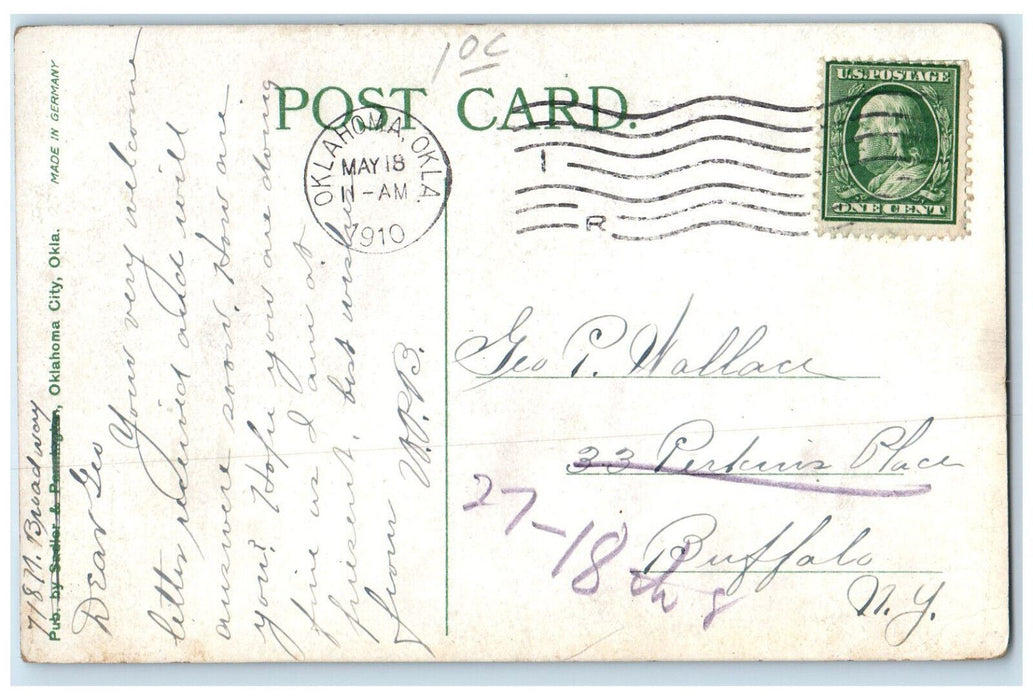 10¢
POST CARD.
OKLAHOMA, OKLA.
MAY 18
11-AM
1910
1
R
U.S. POSTAGE
ONE CENT
MADE IN GERMANY
Pub. by Sadler &
Oklahoma City, Okla.
718 N. Broadway
Dear Geo
Your very welcome
letter received and will
answere soon. How are
you? Hope you are doing
fine as I am at
present. best wishes
from W.P.B.
Geo P. Wallace
33 Perkins Place
27-18th
Buffalo
N.Y.